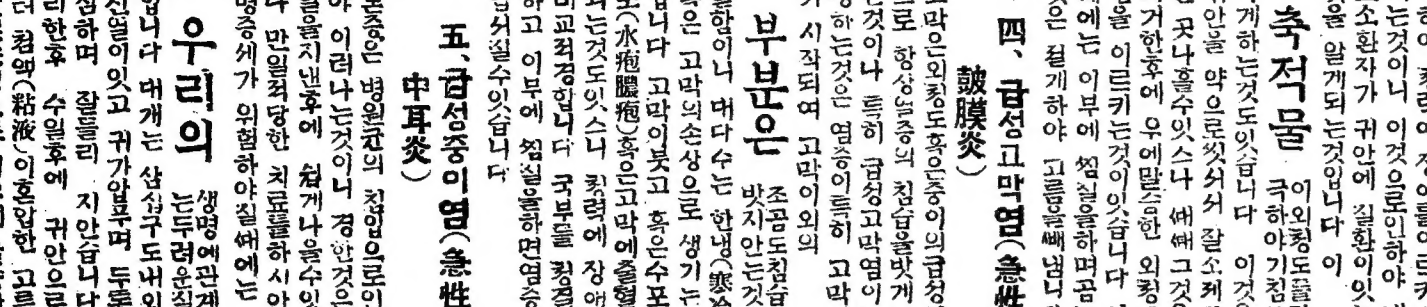 는것이니 이것으로인하야
소환자가 귀안에 질환이잇
을 알게되는것입니다 이
축적물 이외청도를
극하야기침
게하는것도잇습니다 이것
귀안을 약으로씻서서 잘소제
곳나흘수잇스나 때때그것
거한후에 우에말슴한 외청
을 이르키는것이잇습니다
에는 이부에 찜질을하며곰
은 절개하야 고름을빼냅니
四、급성고막염(急性
皷膜炎)
고막은외청도혹은중이의급성
로 항상 침습을밧게
는것이나 특히 급성고막염이
하는것은 염증이특히 고막
시작되여 고막이외의
부분은 조곰도침습
밧지안는것
할함이니 대다수는 한냉(寒冷
은 고막의손상으로 생기는
니다 고막이붓고 혹은수포
(水疱膿疱)혹은고막에출혈
는것도잇스니 청력에 장애
비교적경합니다 국부를 청결
하고 이부에 찜질을하면염증
서질수잇습니다
五、급성중이염(急性
中耳炎)
본증은 병원균의 침입으로인
야 이러나는것이니 경한것은
을지낸후에 쉽게나을수잇
나 만일적당한 치료를하시안
명증세가 위험하야질때에는
우리의 생명에관계
는두려운질
입니다 대개는 삼십구도내외
신열이잇고 귀가압푸며 두통
심하며 잘들리 지안습니다
리한후 수일후에 귀안으로
터 점액(粘液)이혼합한 고르